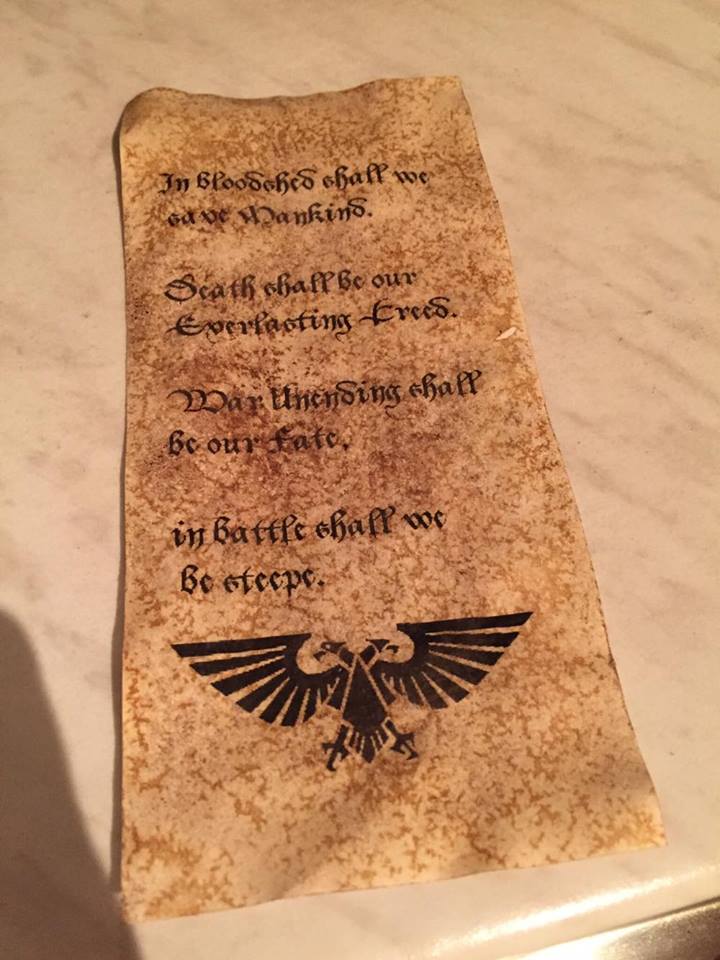 In bloodshed shall we
save Mankind.
Death shall be our
Everlasting Creed.
War Unending shall
be our Fate,
in battle shall we
be steepe.